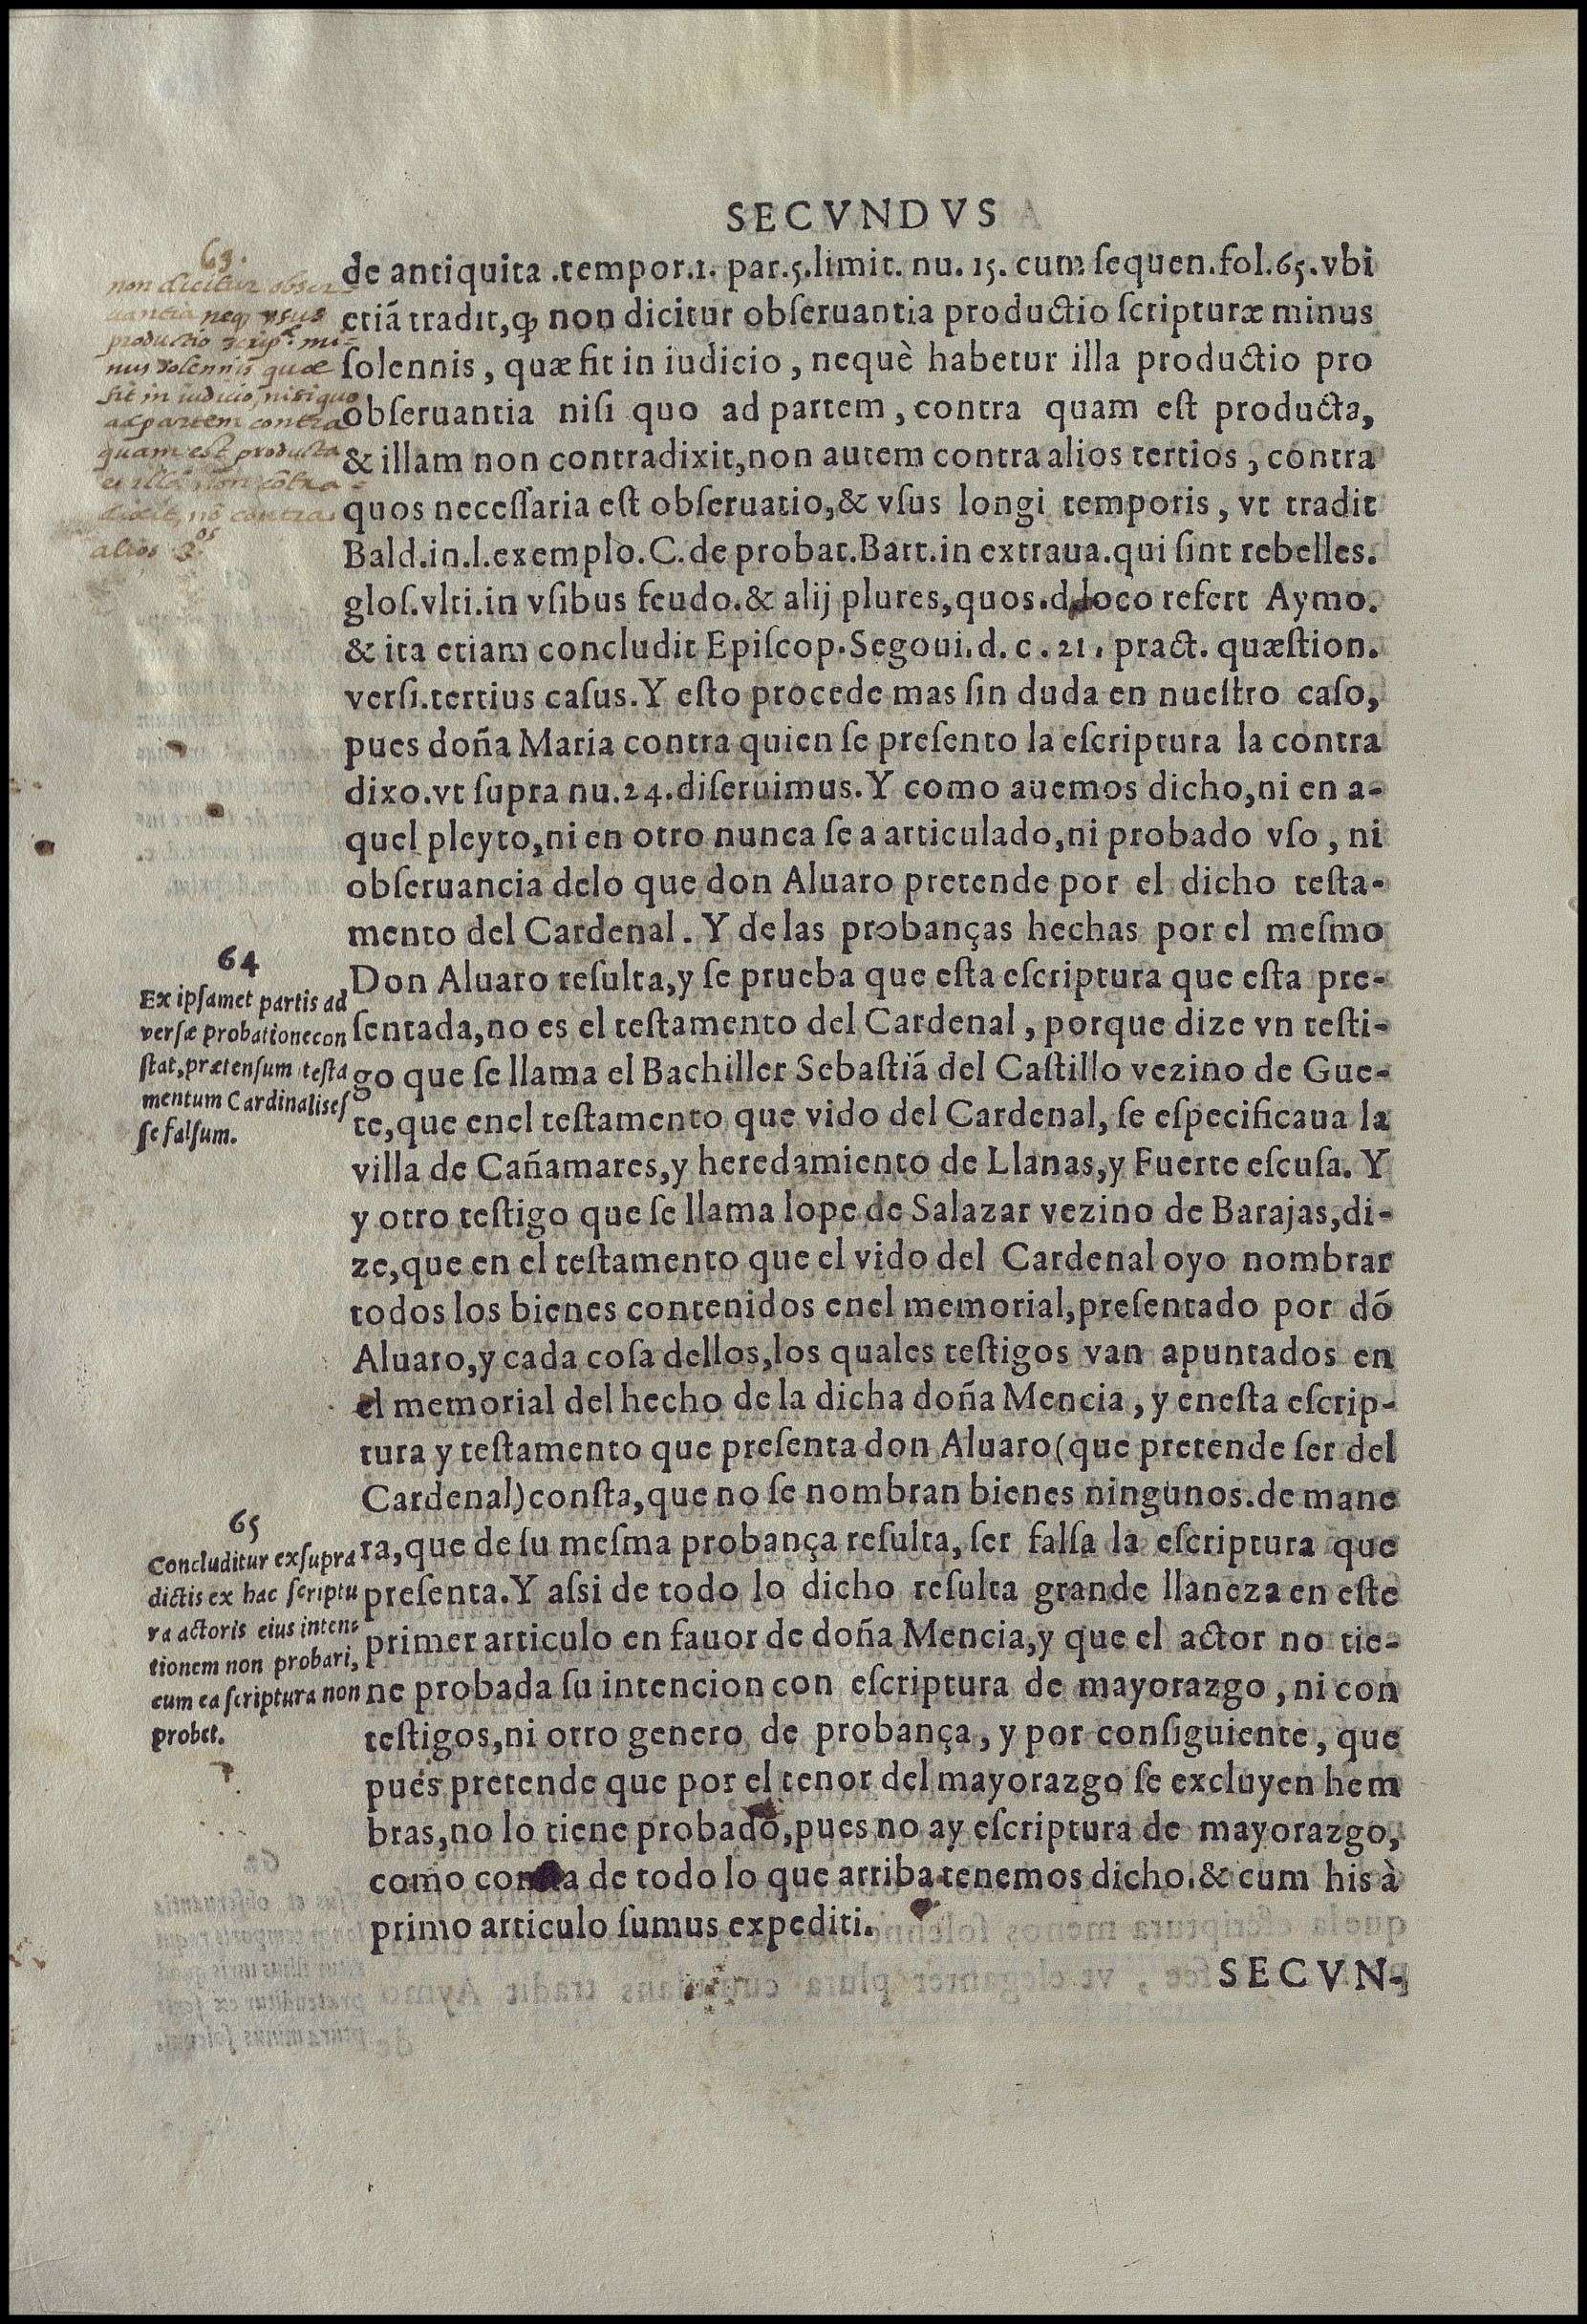 SECVNDVS
63.
non dicitur obser-
uantia neq vsus
productio scrip.ᵉ mi-
nus solennis quae
fit in iudicio, nisi quo
ad partem contra
quam est producta
et illā non cōtra-
dixit, nō contra
alios 3.ᵒˢ
de antiquita .tempor.1. par.5.limit. nu. 15. cum ſequen.fol.65.vbi
etiā tradit,ꝙ non dicitur obſeruantia productio ſcripturæ minus
ſolennis, quæ fit in iudicio, nequè habetur illa productio pro
obſeruantia niſi quo ad partem, contra quam eſt producta,
& illam non contradixit,non autem contra alios tertios, contra
quos neceſſaria eſt obſeruatio,& vſus longi temporis, vt tradit
Bald.in.l.exemplo.C.de probat.Bart.in extraua.qui ſint rebelles.
gloſ.vlti.in vſibus feudo.& alij plures,quos.d.loco refert Aymo.
& ita etiam concludit Epiſcop.Segoui.d. c. 21. pract. quæſtion.
verſi.tertius caſus.Y eſto procede mas ſin duda en nueſtro caſo,
pues doña Maria contra quien ſe preſento la eſcriptura la contra
dixo.vt ſupra nu.24.diſeruimus.Y como auemos dicho,ni en a-
quel pleyto,ni en otro nunca ſe a articulado,ni probado vſo, ni
obſeruancia delo que don Aluaro pretende por el dicho teſta-
mento del Cardenal. Y de las probanças hechas por el meſmo
64
Ex ipſamet partis ad
verſæ probatione con
ſtat,prætenſum teſta
mentum Cardinalis eſ
ſe falſum.
Don Aluaro reſulta,y ſe prueba que eſta eſcriptura que eſta pre-
ſentada,no es el teſtamento del Cardenal, porque dize vn teſti-
go que ſe llama el Bachiller Sebaſtiā del Caſtillo vezino de Gue-
te,que enel teſtamento que vido del Cardenal, ſe eſpecificaua la
villa de Cañamares,y heredamiento de Llanas,y Fuerte eſcuſa. Y
y otro teſtigo que ſe llama lope de Salazar vezino de Barajas,di-
ze,que en el teſtamento que el vido del Cardenal oyo nombrar
todos los bienes contenidos enel memorial,preſentado por dō
Aluaro,y cada coſa dellos,los quales teſtigos van apuntados en
el memorial del hecho de la dicha doña Mencia, y eneſta eſcrip-
tura y teſtamento que preſenta don Aluaro(que pretende ſer del
Cardenal)conſta,que no ſe nombran bienes ningunos.de mane
65
Concluditur ex ſupra
dictis ex hac ſcriptu
ra actoris eius inten-
tionem non probari,
cum ea ſcriptura non
probet.
ra,que de ſu meſma probança reſulta, ſer falſa la eſcriptura que
preſenta.Y aſsi de todo lo dicho reſulta grande llaneza en eſte
primer articulo en fauor de doña Mencia,y que el actor no tie-
ne probada ſu intencion con eſcriptura de mayorazgo, ni con
teſtigos,ni otro genero de probança, y por conſiguiente, que
pues pretende que por el tenor del mayorazgo ſe excluyen hem
bras,no lo tiene probado,pues no ay eſcriptura de mayorazgo,
como conſta de todo lo que arriba tenemos dicho.& cum his à
primo articulo ſumus expediti.
SECVN-